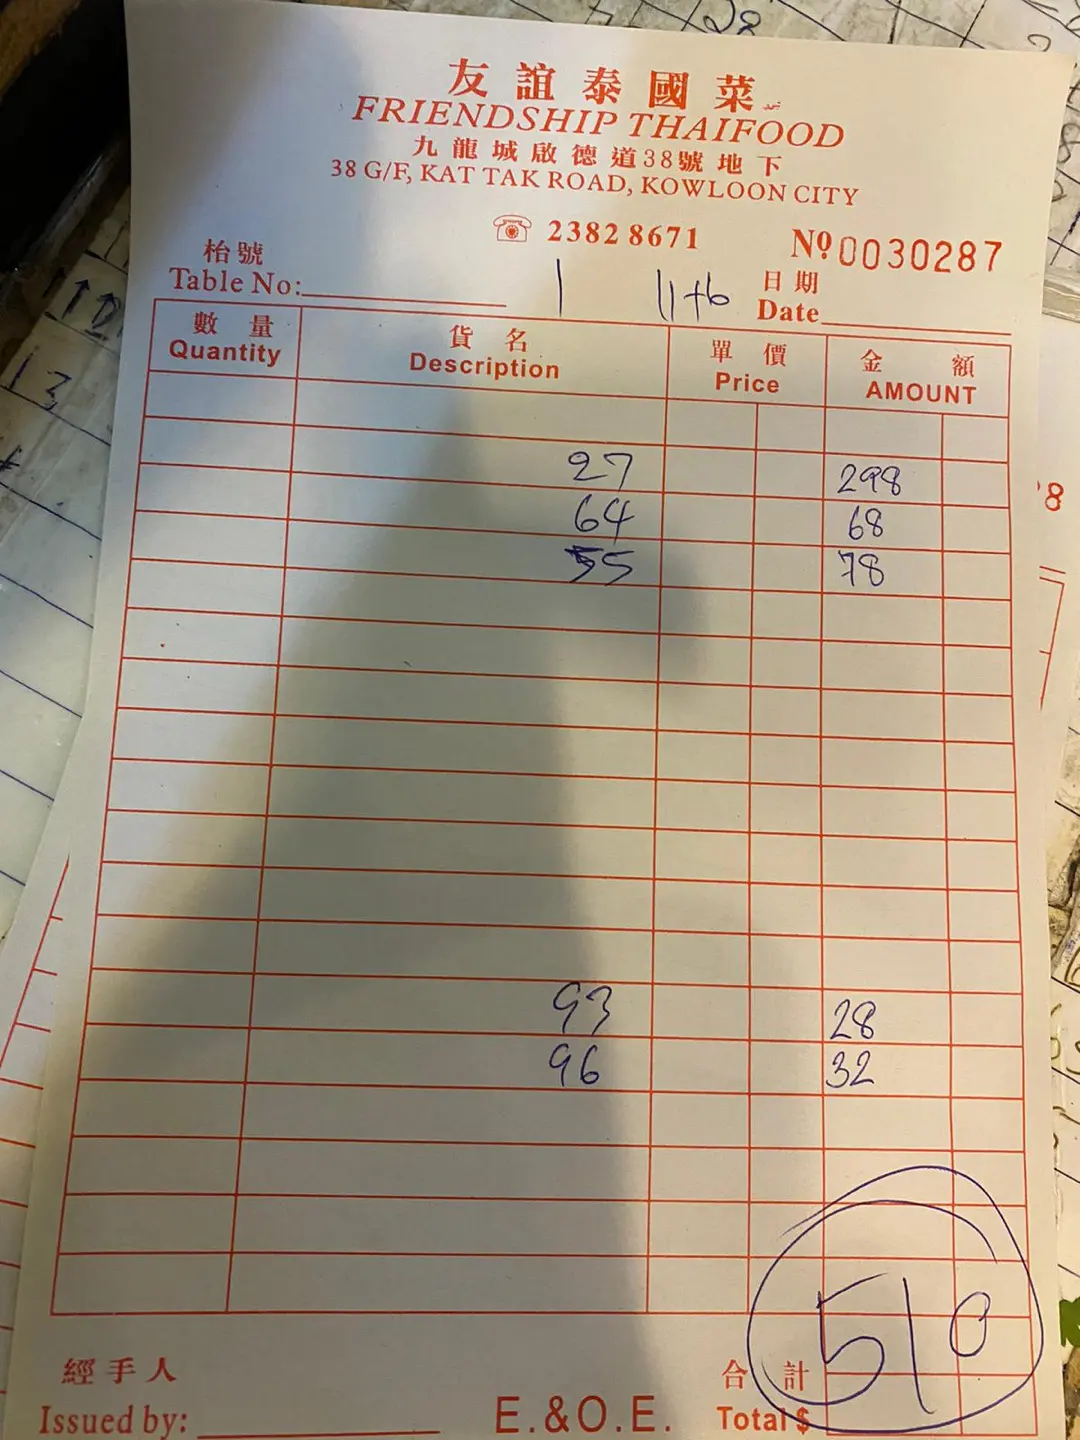 友誼泰國菜
FRIENDSHIP THAIFOOD
九龍城啟德道38號地下
38 G/F, KAT TAK ROAD, KOWLOON CITY
☏ 2382 8671 Nº 0030287
枱號 日期
Table No: 1 11+6 Date
數量 貨名 單價 金額
Quantity Description Price AMOUNT
27 298
64 68
55 78
93 28
96 32
510
經手人 合計
Issued by: E.&O.E. Total $